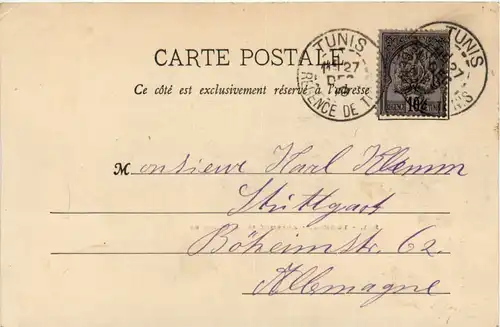 TUNIS
27
DEC
RÉGENCE DE T
TUNIS
27
10c
CARTE POSTALE
Ce côté est exclusivement réservé à l'adresse
Monsieur Karl Klemm
Stuttgart
Böheimstr. 62.
Allemagne